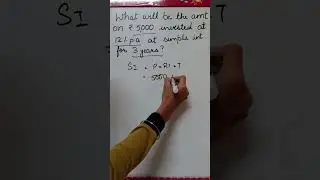 What will be the amt
on ₹ 5,000 invested at
12% pa at simple int
for 3 years?
SI = P × R × T
= 5000 ×